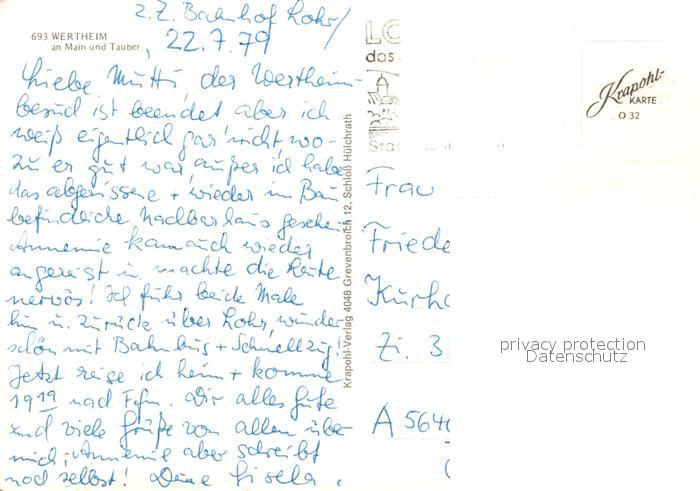 z. Z. Bahnhof Lohr/
693 WERTHEIM
an Main und Tauber
, 22.7.79
Liebe Mutti, der Wertheim-
besuch ist beendet aber ich
weiß eigentlich gar nicht, wo-
zu er gut war, außer ich habe
das abgerissene + wieder im Bau
befindliche Nachbarhaus gesehen.
Annemie kam auch wieder
angereist u. machte die Leute
nervös! Ich fuhr beide Male
hin u. zurück über Lohr, wunder
schön mit Bahnbus + Schnellzug!
Jetzt reise ich heim + komme
19 19 nach Ffm. Dir alles Gute
und viele Grüße von allen über
mich; Annemie aber schreibt
noch selbst! Deine Gisela.
Krapohl-Verlag 4048 Grevenbroich 12, Schloß Hülchrath
LO
das
Krapohl-
KARTE
O 32
Frau
Friede
Kurho
Zi. 3
A 564
privacy protection
Datenschutz